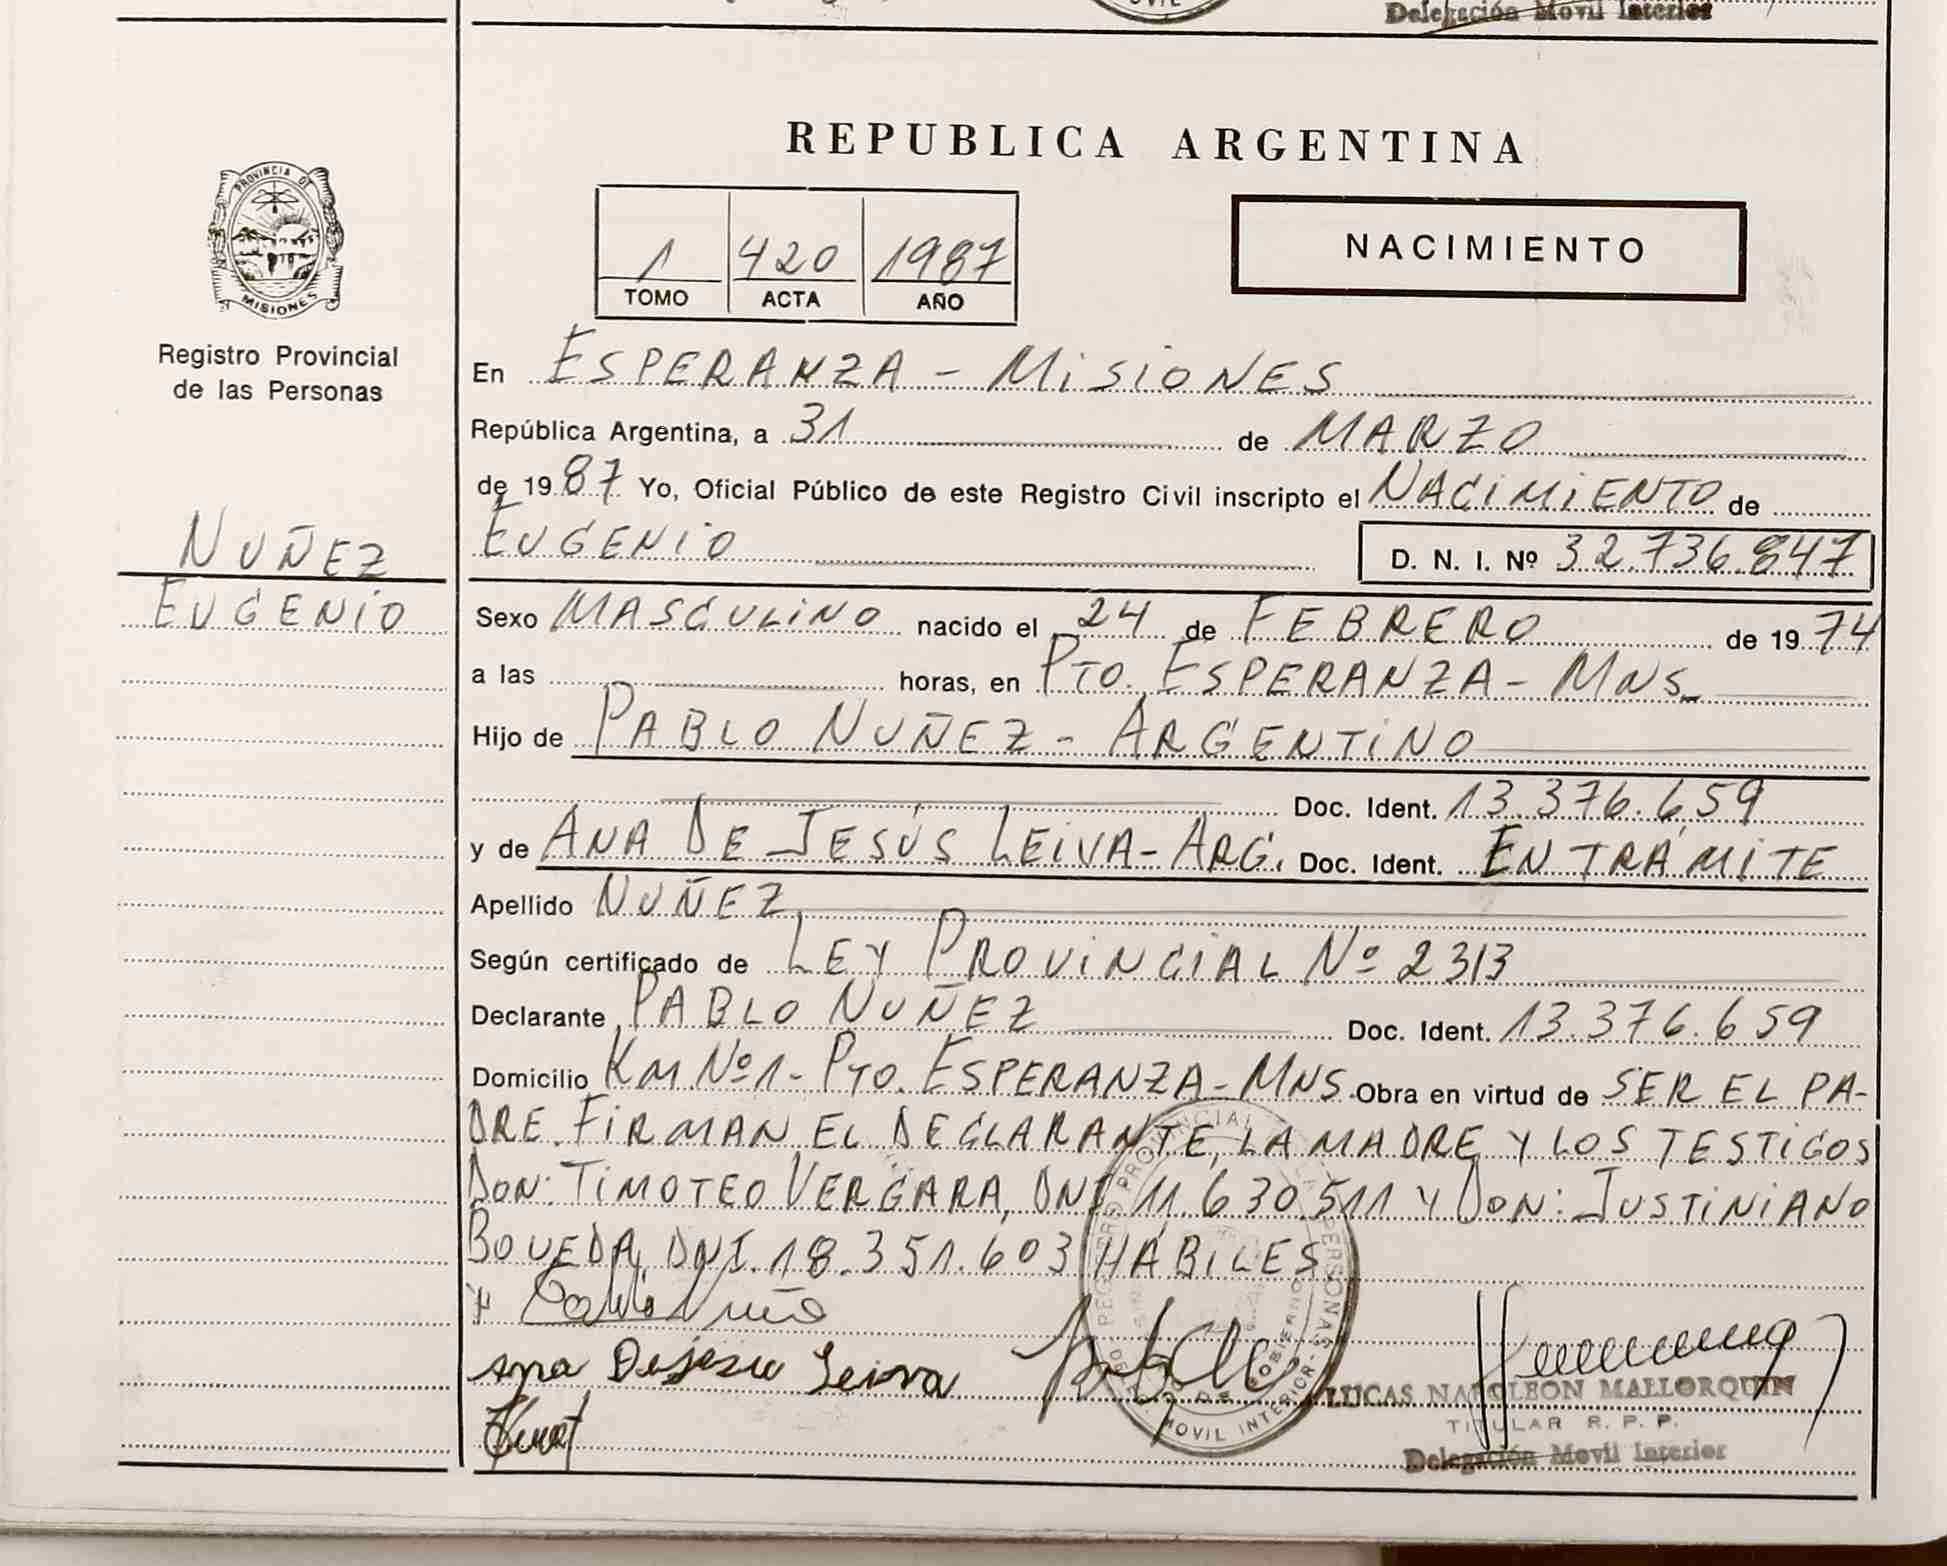 Delegación Movil Interior
REPUBLICA ARGENTINA
PROVINCIA DE
MISIONES
1 420 1987
TOMO ACTA AÑO
NACIMIENTO
Registro Provincial
de las Personas
En ESPERANZA - MISIONES
República Argentina, a 31 de MARZO
de 1987 Yo, Oficial Público de este Registro Civil inscripto el NACIMIENTO de
NUÑEZ
EUGENIO
EUGENIO D. N. I. Nº 32.736.847
Sexo MASCULINO nacido el 24 de FEBRERO de 1974
a las horas, en PTO. ESPERANZA - MNS.
Hijo de PABLO NUÑEZ - ARGENTINO
Doc. Ident. 13.376.659
y de ANA DE JESÚS LEIVA - ARG. Doc. Ident. EN TRÁMITE
Apellido NUÑEZ
Según certificado de LEY PROVINCIAL Nº 2313
Declarante PABLO NUÑEZ Doc. Ident. 13.376.659
Domicilio KM Nº 1 - PTO. ESPERANZA - MNS. Obra en virtud de SER EL PA-
DRE. FIRMAN EL DECLARANTE, LA MADRE Y LOS TESTIGOS
DON: TIMOTEO VERGARA, DNI 11.630.511 Y DON: JUSTINIANO
BOVEDA, DNI. 18.351.603 HÁBILES.
Ana Dejesu Leiva
LUCAS NAPOLEON MALLORQUIN
TITULAR R. P. P.
Delegación Movil Interior
MOVIL INTERIOR